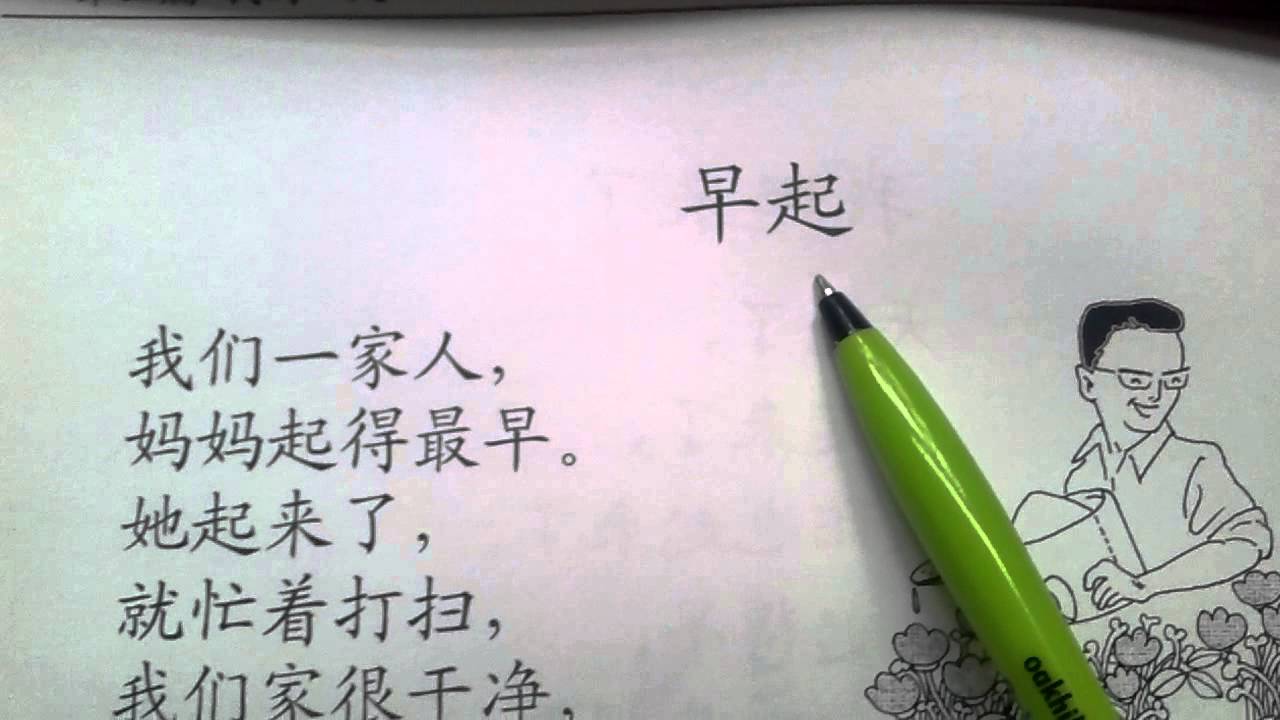 早起
我们一家人,
妈妈起得最早。
她起来了,
就忙着打扫,
我们家很干净,
oakhil